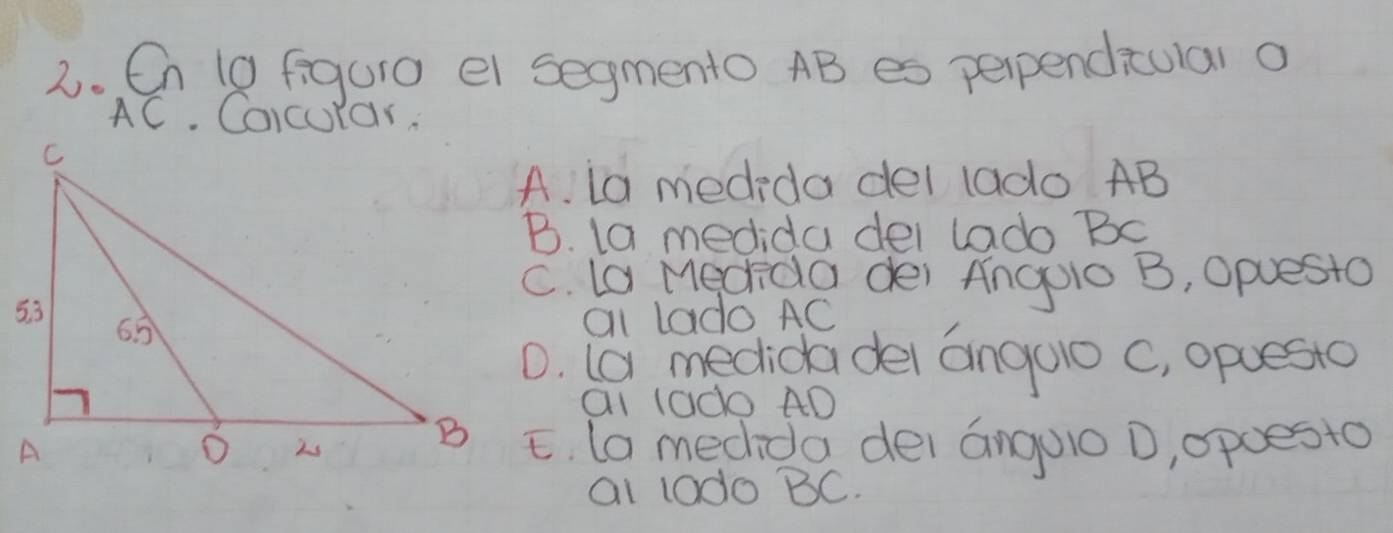 2. En la figura el segmento AB es perpendicular a
AC. Calcular:
C
5.3
6.5
A
D
2
B
A. La medida del lado AB
B. la medida del lado BC
C. La Medida del Ángulo B, opuesto
al lado AC
D. la medida del ángulo C, opuesto
al lado AD
E. la medida del ángulo D, opuesto
al lado BC.